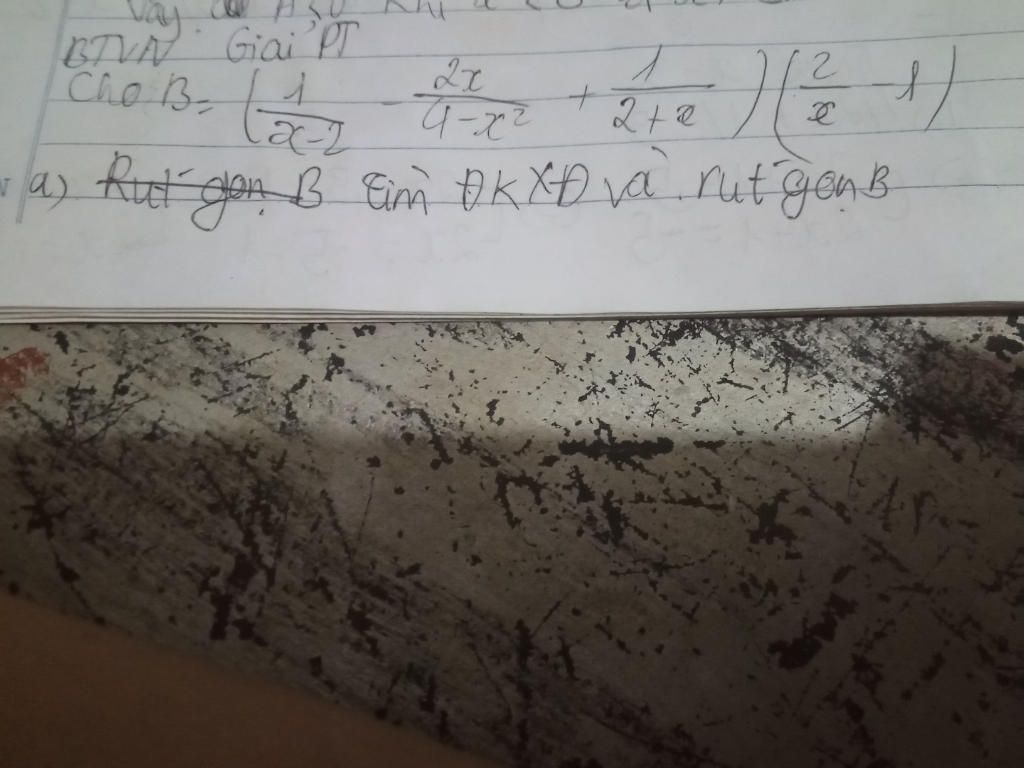 Vậy A<0 khi x
BTVN Giải PT
Cho B = (1/(x-2) - 2x/(4-x²) + 1/(2+x)) (2/x - 1)
a) Rút gọn B tìm ĐKXĐ và rút gọn B